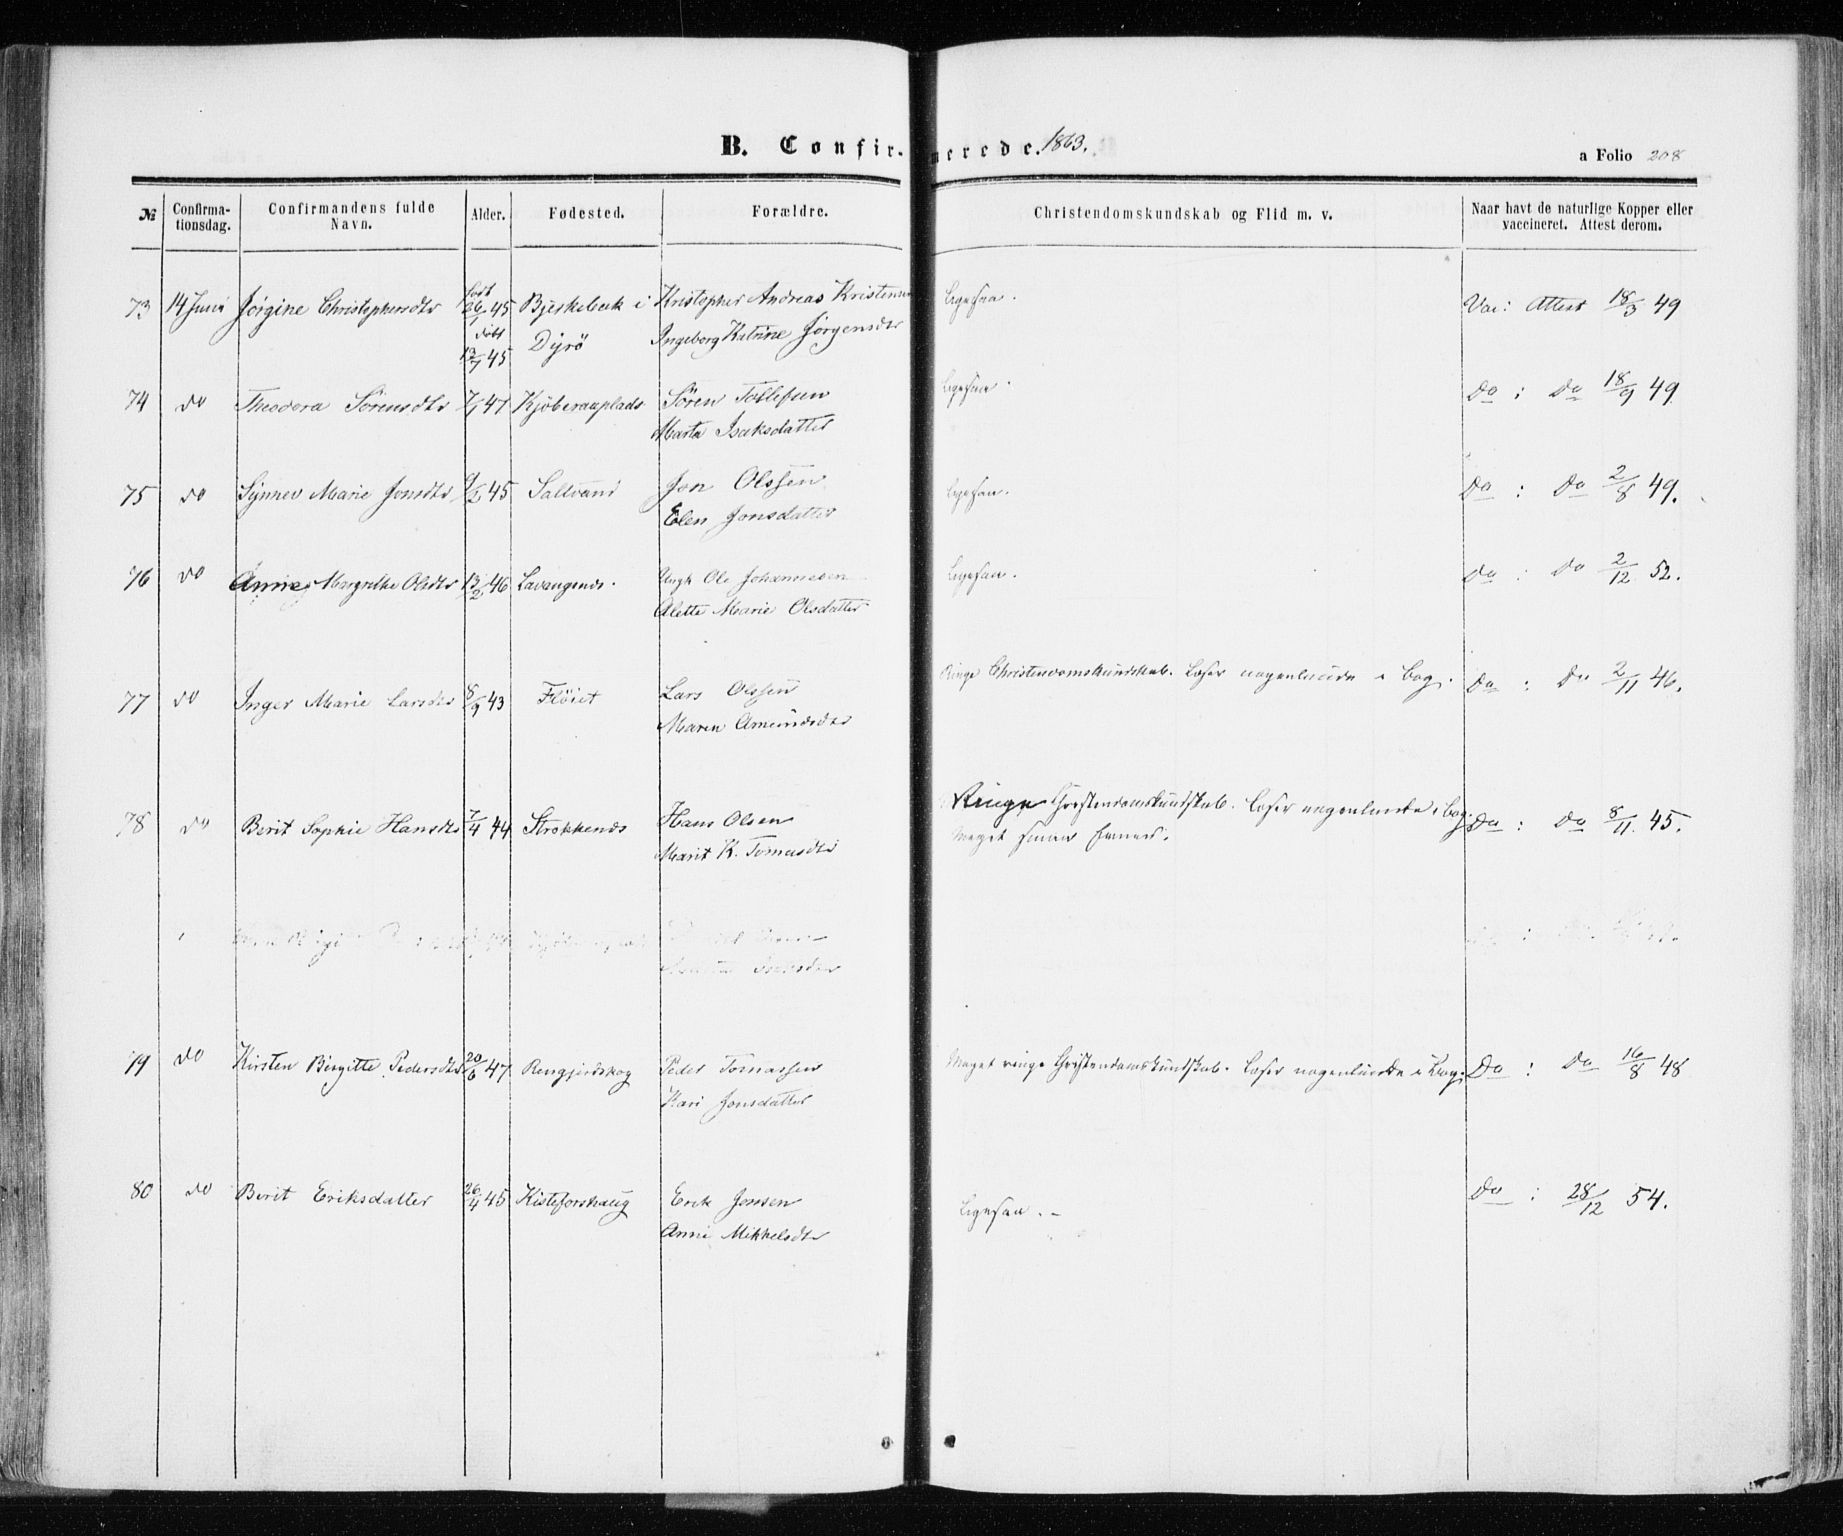 B. Confirmerede. 1863.
a Folio 208
№ Confirmationsdag. Confirmandens fulde Navn. Alder. Fødested. Forældre. Christendomskundskab og Flid m. v. Naar havt de naturlige Kopper eller vaccineret. Attest derom.
73 14 Junii Jörgine Christophersdtr født 26/1 45 Bjerkebæk i Kristopher Andreas Kristensen Ligesaa. Vac: Attest 18/3 49
døbt 13/7 45 Dyrö Ingeborg Katrine Jørgensdtr
74 do Theodora Sörensdtr 7/1 47 Sören Tollefsen Ligesaa. Do : Do 18/9 49
Marta Isaksdatter
75 do Synnev Marie Jonsdtr 9/2 45 Saltvand Jon Olssen Ligesaa. Do : Do 2/8 49.
Elen Jonsdatter
76 do Anne Margrethe Olsdtr 13/2 46 Lavangsnes. Ungk Ole Johannesen Ligesaa. Do : Do 2/12 52.
Alette Marie Olsdatter
77 do Inger Marie Larsdtr 8/9 43 Flöiet Lars Olssen Ringe Christendomskundskab. Læser nogenlunde i Bog. Do : Do 2/11 46.
Maren Amundsdtr
78 do Berit Sophie Hansdtr 7/4 44 Strokkenes Hans Olsen Ringe Christendomskundskab. Læser nogenlunde i Bog. Do : Do 8/11 45.
Marit K. Tomasdtr Meget smaa Evner.
79 do Kirsten Birgitte Pedersdtr 20/6 47 Peder Tomassen Meget ringe Christendomskundskab. Læser nogenlunde i Bog. Do : Do 16/8 48
Kari Jonsdatter
80 do Berit Eriksdatter 26/4 45 Kisteforshaug Erik Jonsen Ligesaa. Do : 28/12 54.
Anne Mikkelsdtr